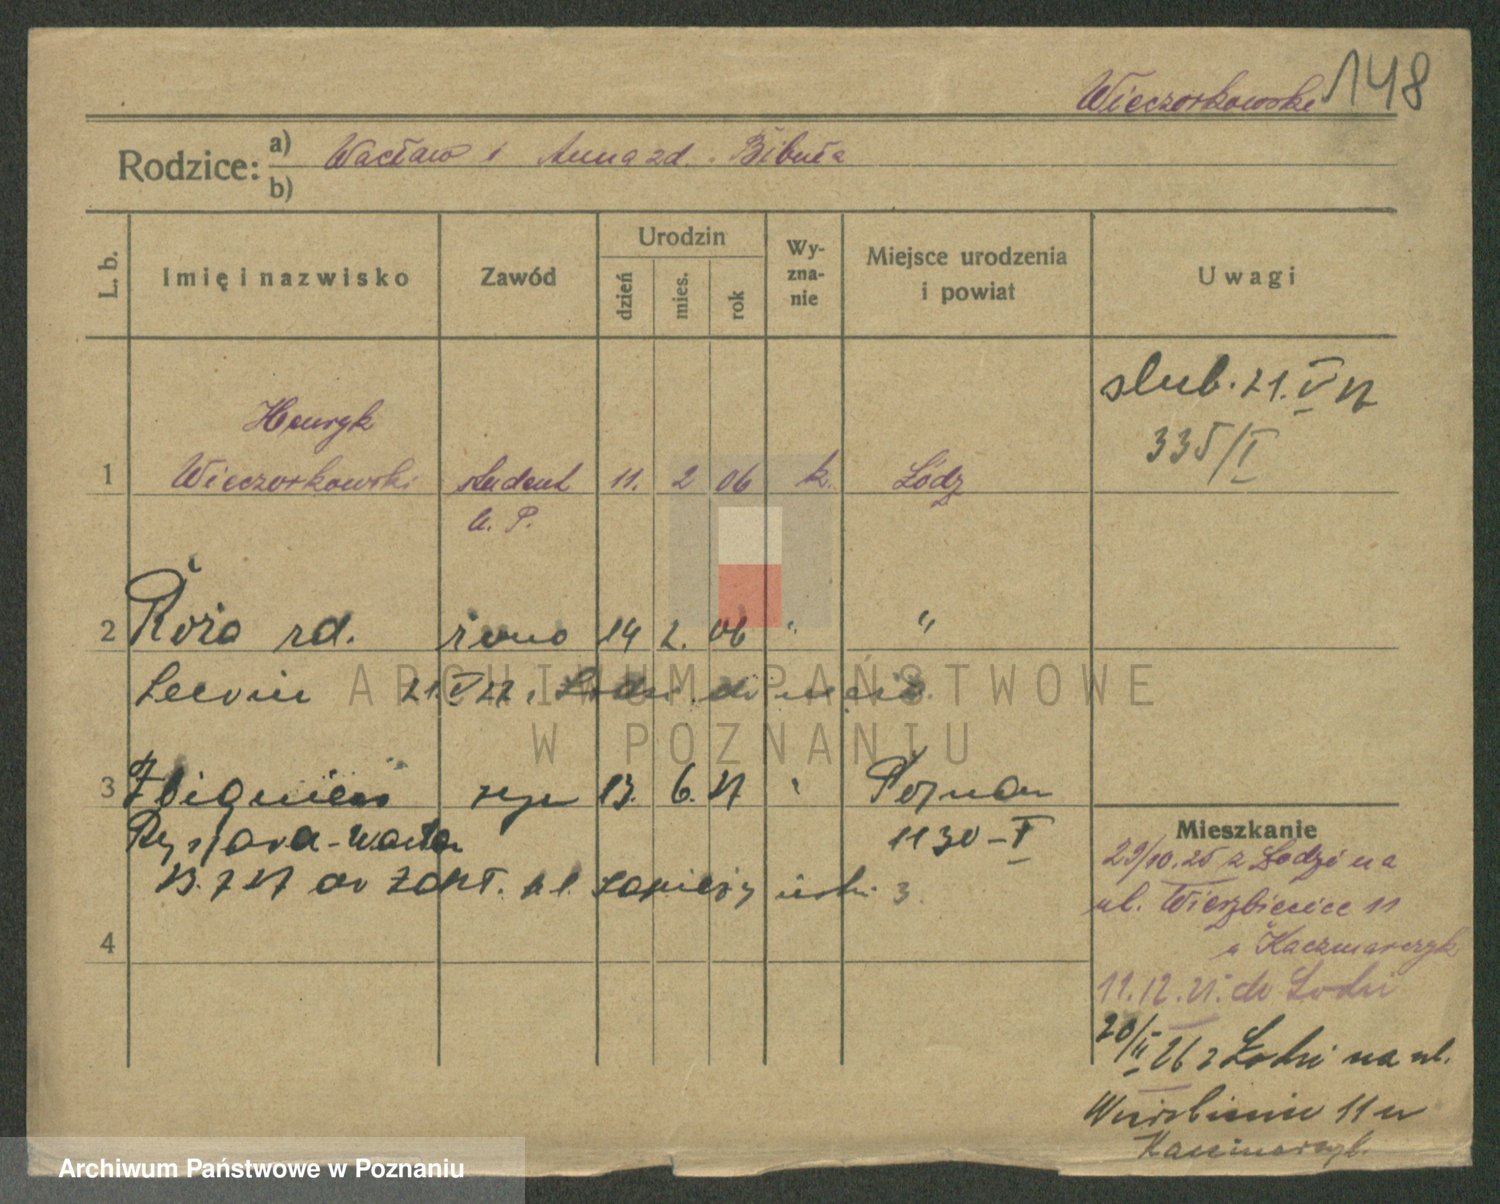 Wieczorkowski 148
Rodzice: a) Wacław i Anna zd. Bibuła
b)
L. b. Imię i nazwisko Zawód Urodzin dzień mies. rok Wyznanie Miejsce urodzenia i powiat Uwagi
ślub. 21.V 27
335/I
Henryk
1 Wieczorkowski student 11. 2 06 k. Łódz
U. P.
2 Róża zd. żona 14 2. 06 " "
Lewin 21.V 27 z Łodzi do męża.
3 Zbigniew syn 13. 6. 27 " Poznań
1130-V
13.7 27 do Zakł. pl. Sapieżyński 3.
4
Mieszkanie
29/10.25 z Łodzi na
ul. Wierzbięcice 11
u Kaczmarczyk
11.12.25. do Łodzi
20/II 26 z Łodzi na ul.
Wierzbięcice 11 u
Kaczmarczyk.
ARCHIWUM PAŃSTWOWE
W POZNANIU
Archiwum Państwowe w Poznaniu